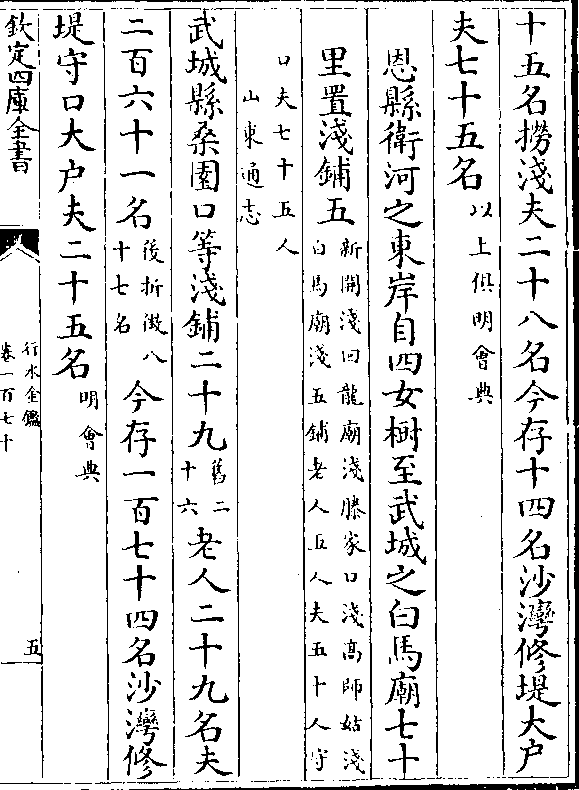 十五名撈淺夫二十八名今存十四名沙灣修堤大户
夫七十五名以上俱明會典
恩縣衛河之東岸自四女樹至武城之白馬廟七十
里置淺鋪五新開淺回龍廟淺滕家口淺髙師姑淺
白馬廟淺五鋪老人五人夫五十人守
口夫七十五人
山東通志
武城縣桑園口等淺鋪二十九舊二十六老人二十九名夫
二百六十一名後折徴八十七名今存一百七十四名沙灣修
堤守口大户夫二十五名明會典
欽定四庫全書
行水金鑑
卷一百七十
五